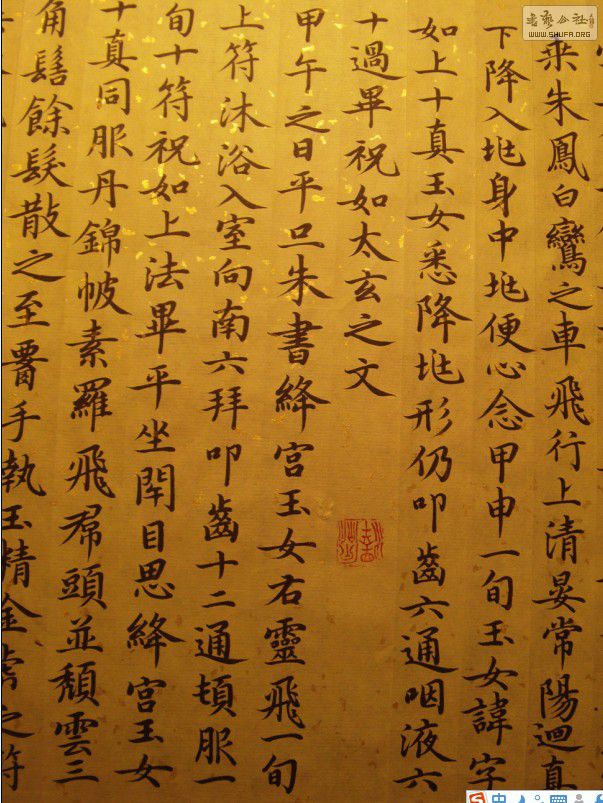 書藝公社
WWW.SHUFA.ORG
乘朱鳳白鸞之車飛行上清晏常陽迴真
下降入兆身中兆便心念甲申一旬玉女諱字
如上十真玉女悉降兆形仍叩齒六通咽液六
十過畢祝如太玄之文
甲午之日平旦朱書絳宮玉女右靈飛一旬
上符沐浴入室向南六拜叩齒十二通頓服一
旬十符祝如上法畢平坐閉目思絳宮玉女
十真同服丹錦帔素羅飛帬頭並頹雲三
角髻餘髮散之至腰手執玉精金虎之符
中